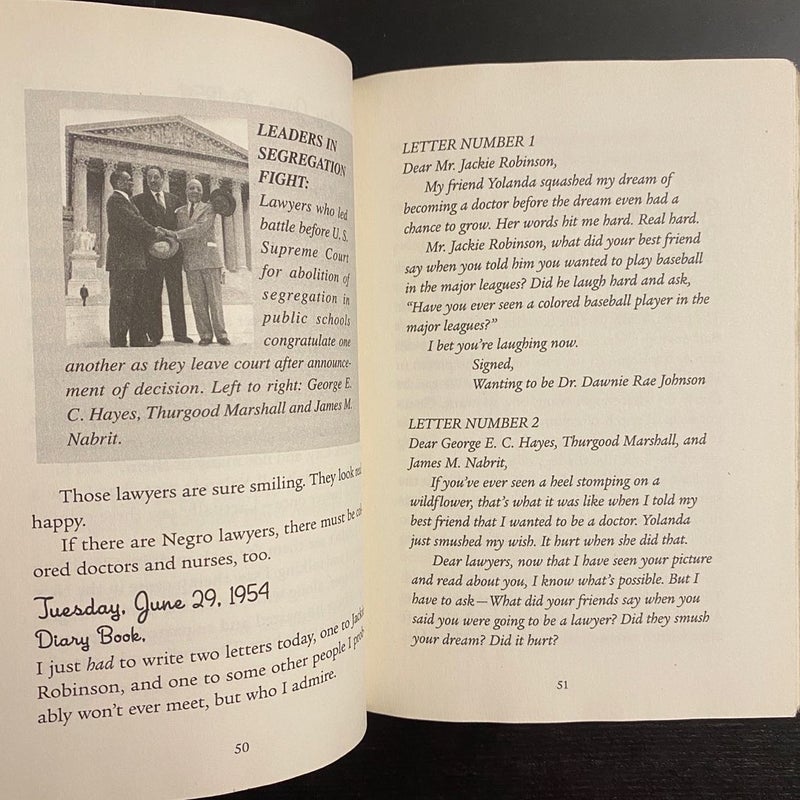 LEADERS IN
SEGREGATION
FIGHT:
Lawyers who led
battle before U.S.
Supreme Court
for abolition of
segregation in
public schools
congratulate one
another as they leave court after announce-
ment of decision. Left to right: George E.
C. Hayes, Thurgood Marshall and James M.
Nabrit.
Those lawyers are sure smiling. They look
happy.
If there are Negro lawyers, there must be
ored doctors and nurses, too.
Tuesday, June 29, 1954
Diary Book,
I just had to write two letters today, one to Jackie
Robinson, and one to some other people I prob-
ably won't ever meet, but who I admire.
50
LETTER NUMBER 1
Dear Mr. Jackie Robinson,
My friend Yolanda squashed my dream of
becoming a doctor before the dream even had a
chance to grow. Her words hit me hard. Real hard.
Mr. Jackie Robinson, what did your best friend
say when you told him you wanted to play baseball
in the major leagues? Did he laugh hard and ask,
"Have you ever seen a colored baseball player in the
major leagues?"
I bet you're laughing now.
Signed,
Wanting to be Dr. Dawnie Rae Johnson
LETTER NUMBER 2
Dear George E. C. Hayes, Thurgood Marshall, and
James M. Nabrit,
If you've ever seen a heel stomping on a
wildflower, that's what it was like when I told my
best friend that I wanted to be a doctor. Yolanda
just smushed my wish. It hurt when she did that.
Dear lawyers, now that I have seen your picture
and read about you, I know what's possible. But I
have to ask—What did your friends say when you
said you were going to be a lawyer? Did they smush
your dream? Did it hurt?
51